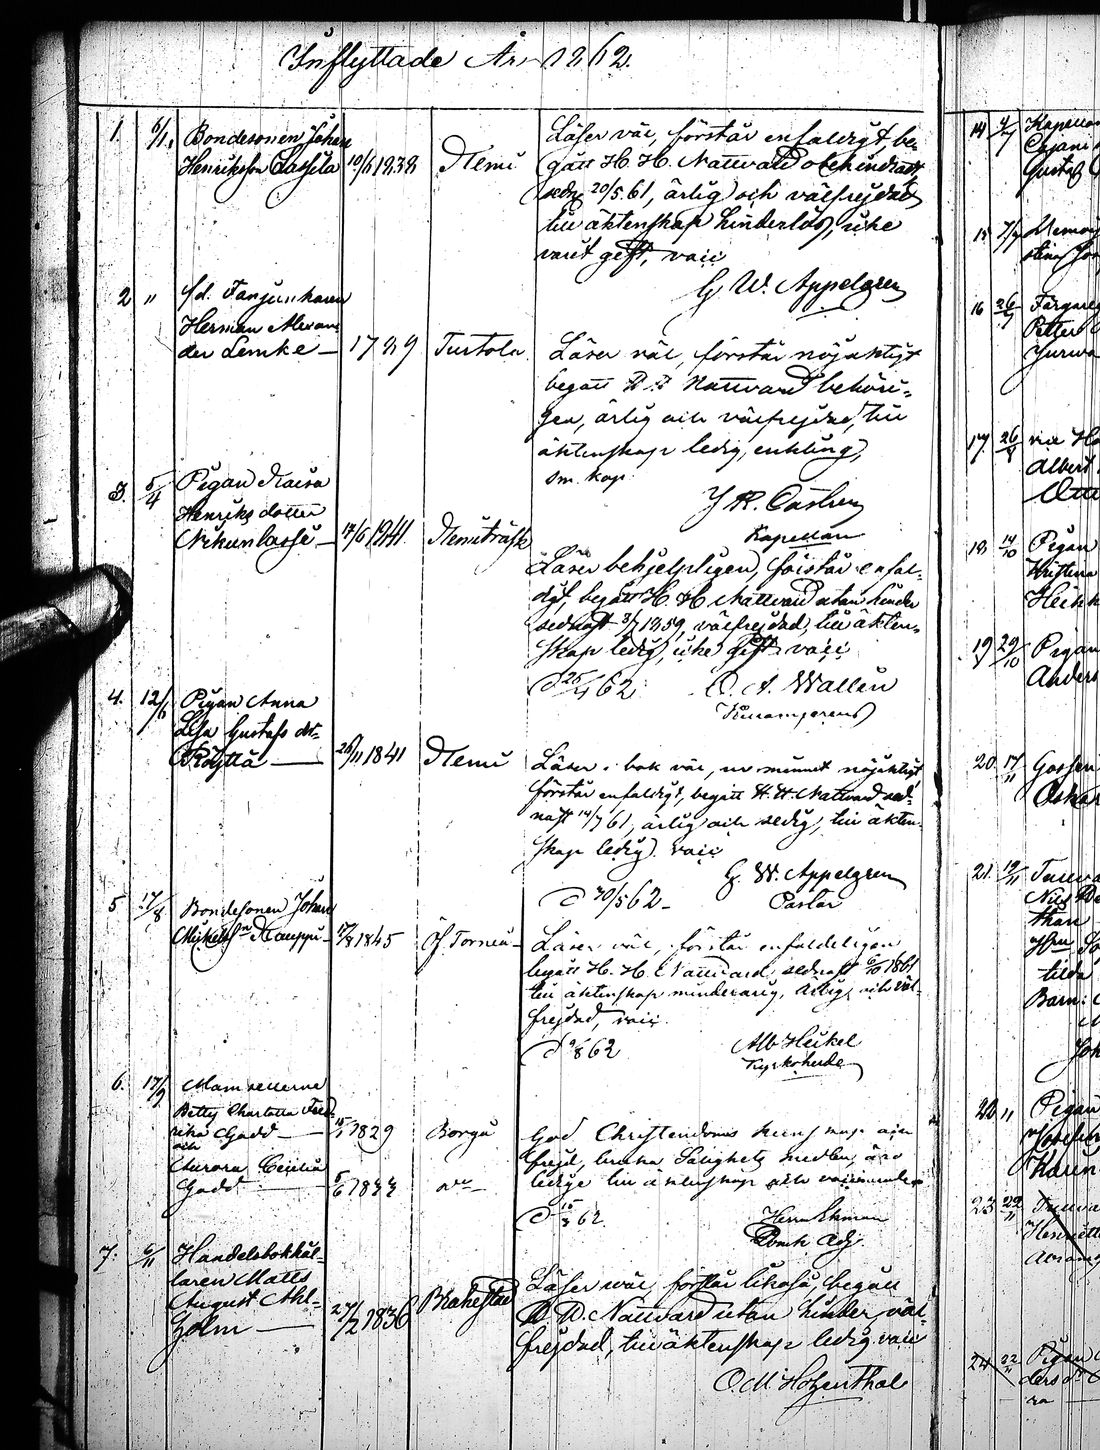 Inflyttade År 1862.
1. 6/1 Bondesonen Johan
Henriksson Lassila 10/6 1838 Kemi
Läser väl, förstår enfaldigt, be-
gått H. H. Nattvard obehindradt,
sedn. 20/5 61, ärlig och välfrejdad,
till äktenskap hinderlös, icke
varit gift, vacc.
G. W. Appelgren
2 " f.d. Fanjunkaren
Herman Alexan-
der Lemke — 1789 Turtola
Läser väl, förstår nöjaktigt
begått H. H. Nattvard behöri-
gen, ärlig och välfrejdad, till
äktenskap ledig, enkling,
sm. kop.
Castrén
Kapellan
3. 5/4 Pigan Kaisa
Henriks dotter
17/6 1841 Kemiträsk
Läser behjelpligen, förstår enfal-
digt, begått H. H. Nattvard utan hinder
sednast 3/7 1859, välfrejdad, till äkten-
skap ledig, icke gift. vacc.
D 25/4 62. O. A. Wallén
4. 12/6 Pigan Anna
Lisa Gustafs dot-
Röyttä — 26/11 1841 Kemi
Läser i bok väl, ur minnet nöjaktigt
förstår enfaldigt, begått H. H. Nattvard sed-
nast 14/7 61, ärlig och sedig, till äkten-
skap ledig. vacc.
G. W. Appelgren
D 30/5 62 — Pastor
5 17/8 Bondesonen Johan
Mickelsson Kauppi — 17/8 1845 Öf. Torneå —
Läser väl, förstår enfaldeligen
begått H. H. Nattvard sednast 6/10 1861
till äktenskap minderårig, ärlig och väl-
frejdad, vacc.
D 9/8 62 Alb Heikel
Kyrkoherde
6. 17/9 Mamsellerne
Betty Charlotta Fred-
rika Gadd — 15/1 1829 Borgå
och
Aurora Cecilia
Gadd — 5/6 1833 d:o
God Christendoms kunskap och
frejd, bruka Salighets medlen, äro
ledige till äktenskap och vaccinerade
D 15/3 62. Herm Ekman
Domk Adj.
7. 6/11 Handelsbokhål-
laren Matts
August Ahl-
holm — 27/2 1836 Brahestad
Läser väl, förstår likaså, begått
H. H. Nattvard utan hinder, väl-
frejdad, till äktenskap ledig. vacc
O. M. Holzenthal
14 Kapellan
Cajani
Gustaf
15 7/7
stina
16 26/7
Petter
17. 26/8 vice
Albert
18. 14/10 Pigan
Kristina
Heikk
19 29/10 Pigan
Anders
20 17/11 Gossen
Oskar
21. 19/11
Nils
than
tilda
Barn:
Joh
22 " Pigan
Josefin
Karen
23 22/11
Henriett
24 22/11 Pigan
ders d:r
ra —